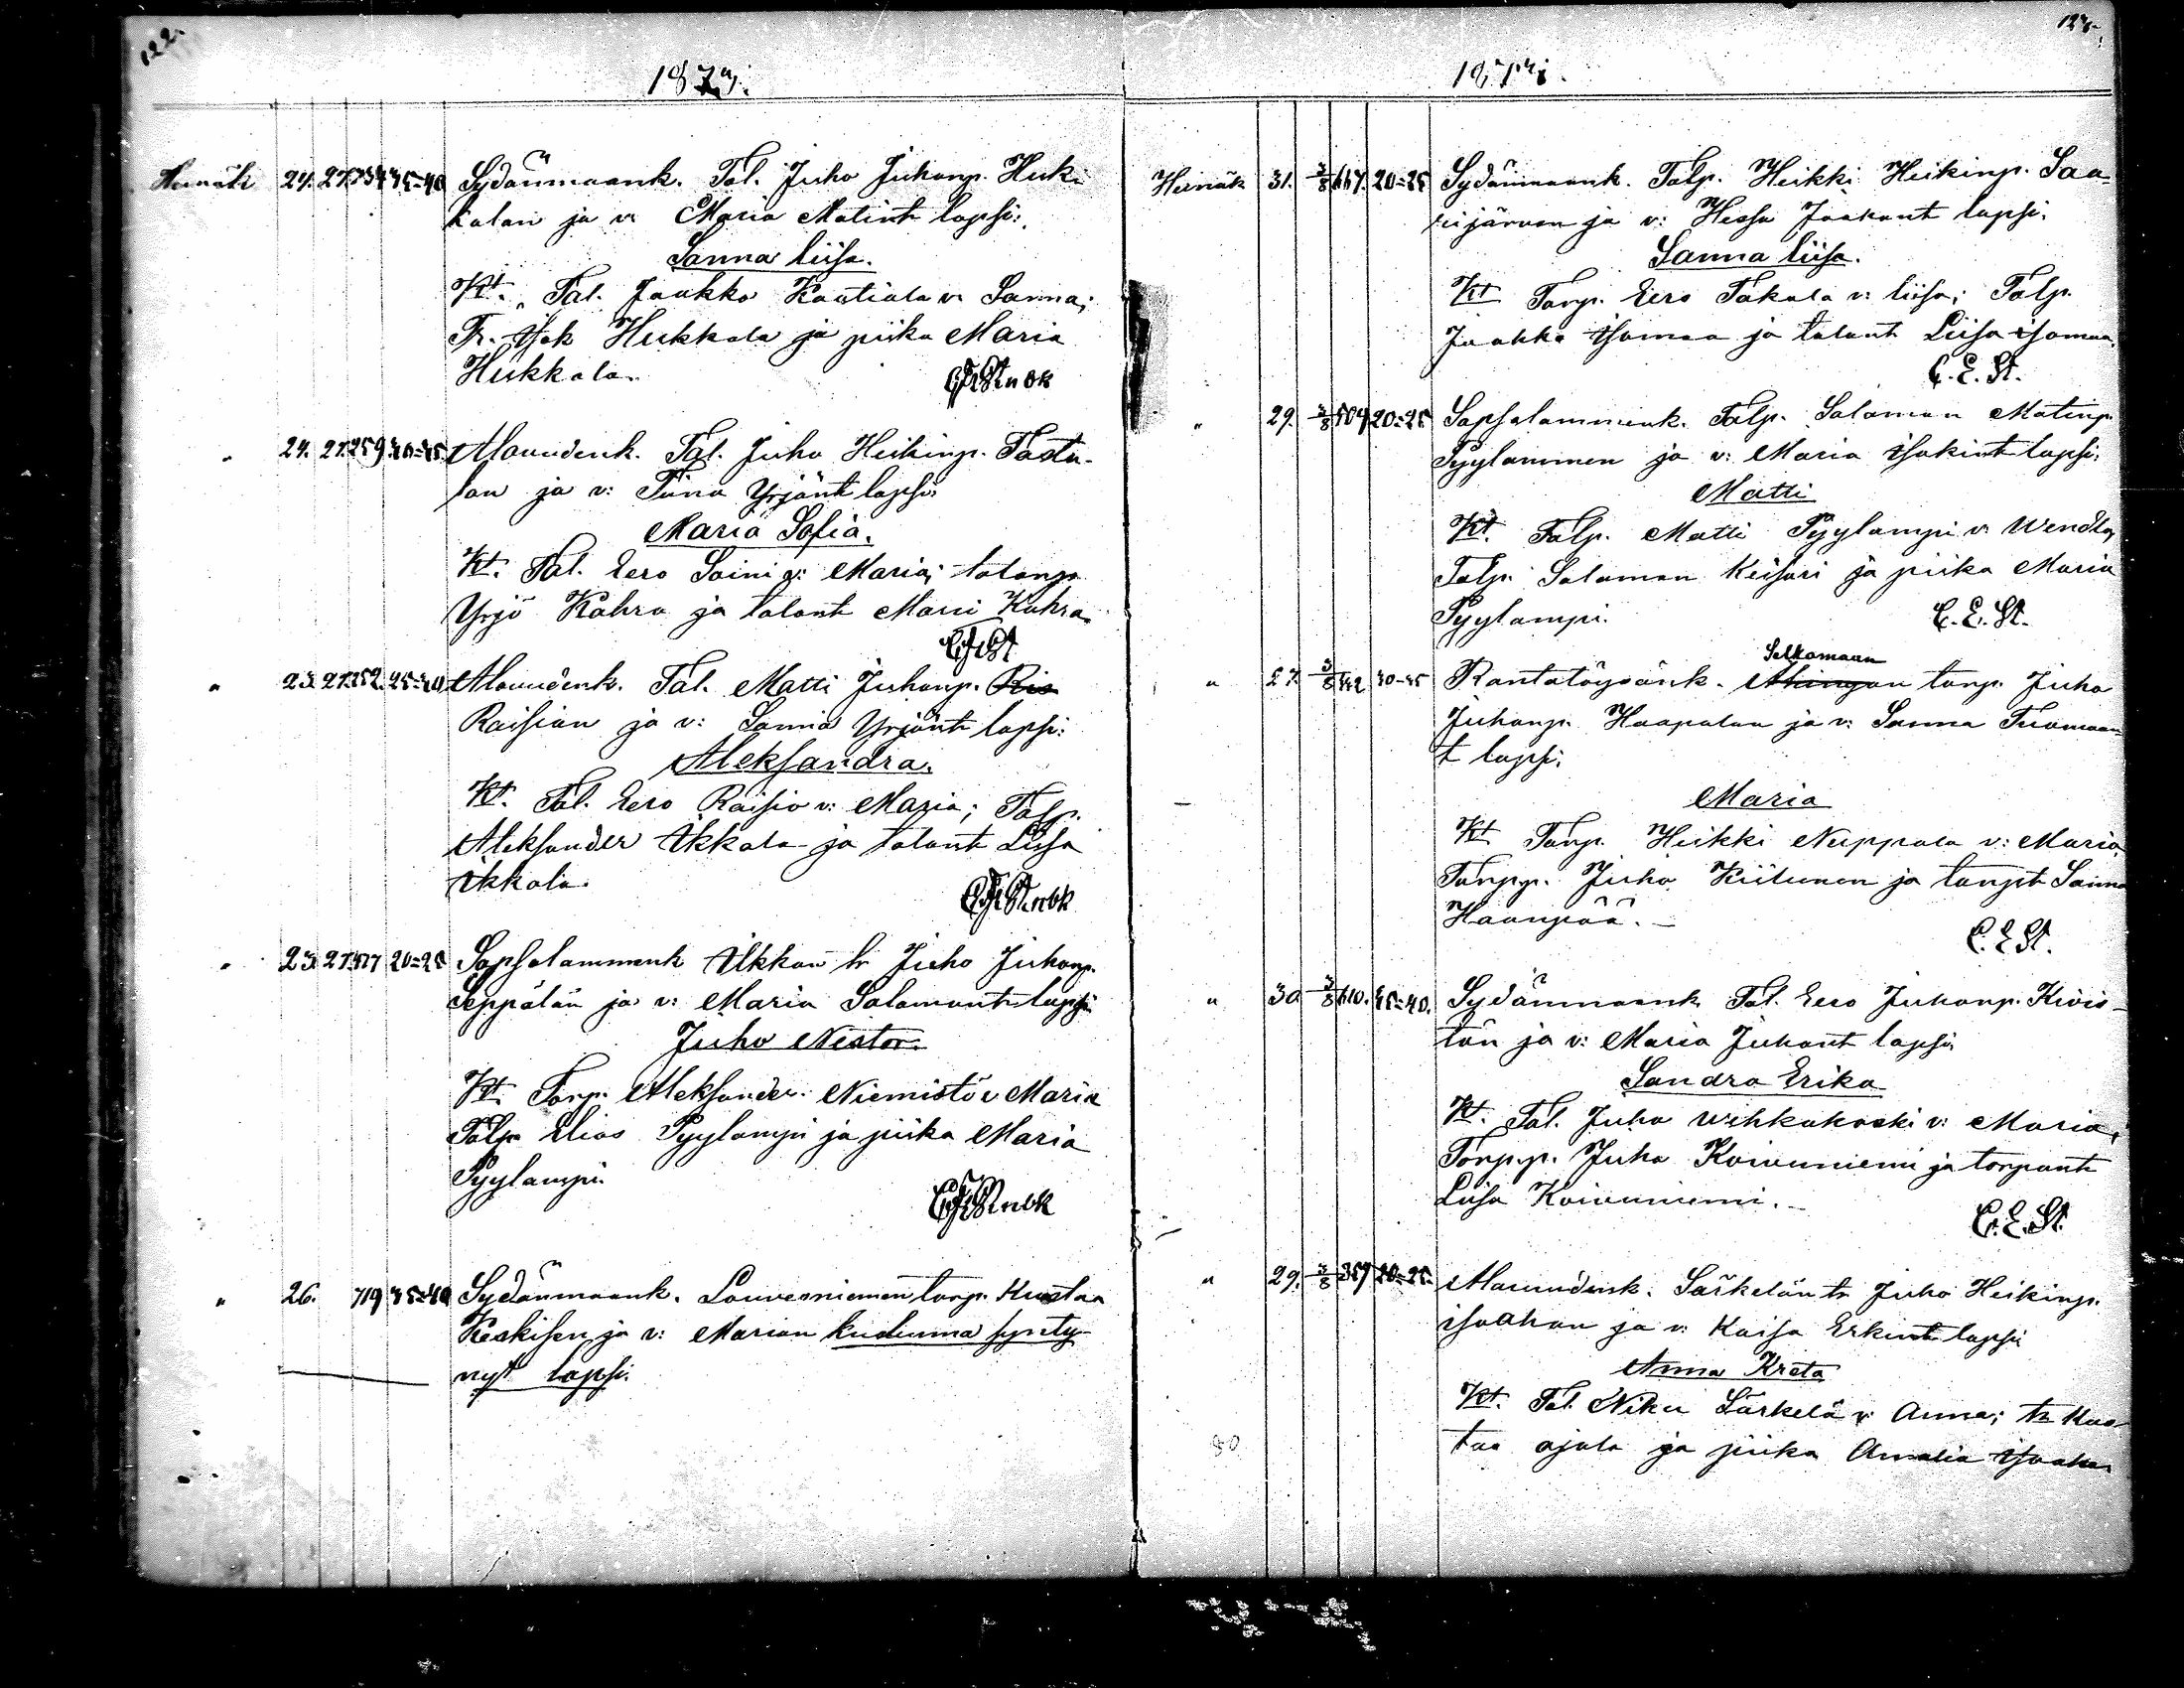 122.
1873.
Heinäk 24. 27. 734 35=40 Sydänmaank. Tal. Juho Juhonp. Huk-
kalan ja v: Maria Matint lapsi:
Sanna Liisa.
Kt. Tal. Jaakko Kaatiala v: Sanna;
Tr. Isak Hukkala ja piika Maria
Hukkala.
" 24. 27. 259 Alavudenk. Tal. Juho Heikinp. Tastu-
lan ja v: Tiina Yrjönt lapsi:
Maria Sofia.
Kt. Tal. Eero Saini v: Maria; talonp
Yrjö Kahra ja talont Mari Kahra.
" 23. 27. 252. 25=30 Alavudenk. Tal. Matti Juhonp. Rio
Raision ja v: Sanna Yrjönt lapsi:
Aleksandra.
Kt. Tal. Eero Raisio v: Maria; Talp.
Aleksander Ikkala ja talont Liisa
Ikkala.
" 23. 27. 20=25 Sapsalammenk Ilkkan tr Juho Juhonp.
Seppälän ja v: Maria Salamont lapsi
Juho Nestor.
Kt. Torp. Aleksander Niemistö v Maria
Talp Elias Pyylampi ja piika Maria
Pyylampi.
" 26. 719 35=40 Sydänmaank. Louvesniemen torp. Kustaa
Keskisen ja v: Marian kuolluna synty-
nyt lapsi.
1873.
Heinäk 31. 3/8 667. 20=25 Sydänmaank. Talp. Heikki Heikinp. Saa-
rijärven ja v: Hessa Jaakont lapsi.
Sanna Liisa.
Kt Torp. Eero Takala v: Liisa; Talp.
Jaakko Isomaa ja talont Liisa Isomaa.
C. E. St.
" 29. 3/8 504 20=25 Sapsalammenk. Talp. Salomon Matinp
Pyylammen ja v: Maria Isakint lapsi:
Matti
Kt. Talp. Matti Pyylampi v: Wendla,
Talp. Salomon Keisari ja piika Maria
Pyylampi. C. E. St.
Selkämaan
" 27. 3/8 30-35 Rantatöysänk. Alangon torp. Juho
Juhonp. Haapalan ja v: Sanna Tuomaan-
t lapsi.
Maria
Kt Torp. Heikki Neppala v: Maria,
Torpp. Juho Kiitunen ja torpt Sanna
Haanpää.
C. E St.
" 30. 3/8 610. 35=40. Sydänmaank Tal. Eero Juhonp. Kivis-
tön ja v: Maria Juhont lapsi
Sandra Erika
Kt. Tal. Juho Wehkakoski v: Maria,
Torpp. Juho Koivuniemi ja torpant
Liisa Koivuniemi.
C. E. St.
" 29. 3/8 359 20=25. Alavudenk. Särkelän tr Juho Heikinp.
Isoahon ja v: Kaisa Erkint lapsi
Anna Kreta
Kt. Tal. Niku Särkelä v: Anna; tr Kus-
taa Ojala ja piika Amalia Isoaho